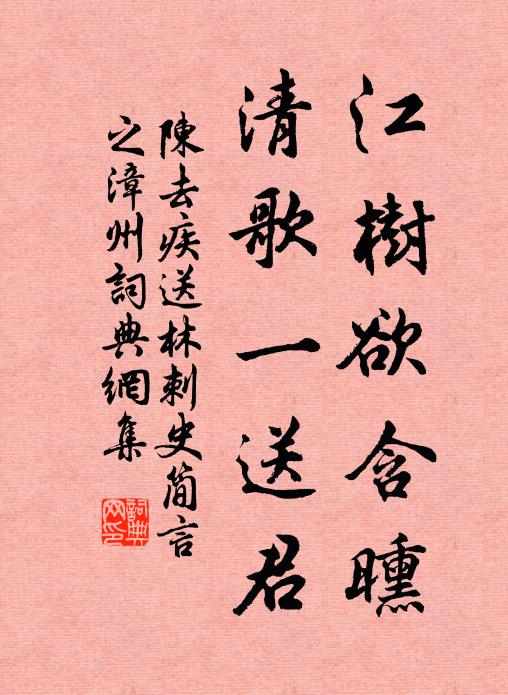 江樹欲含曛
清歌一送君
陳去疾送林刺史簡言
之漳州詞典網集
詞典
网印